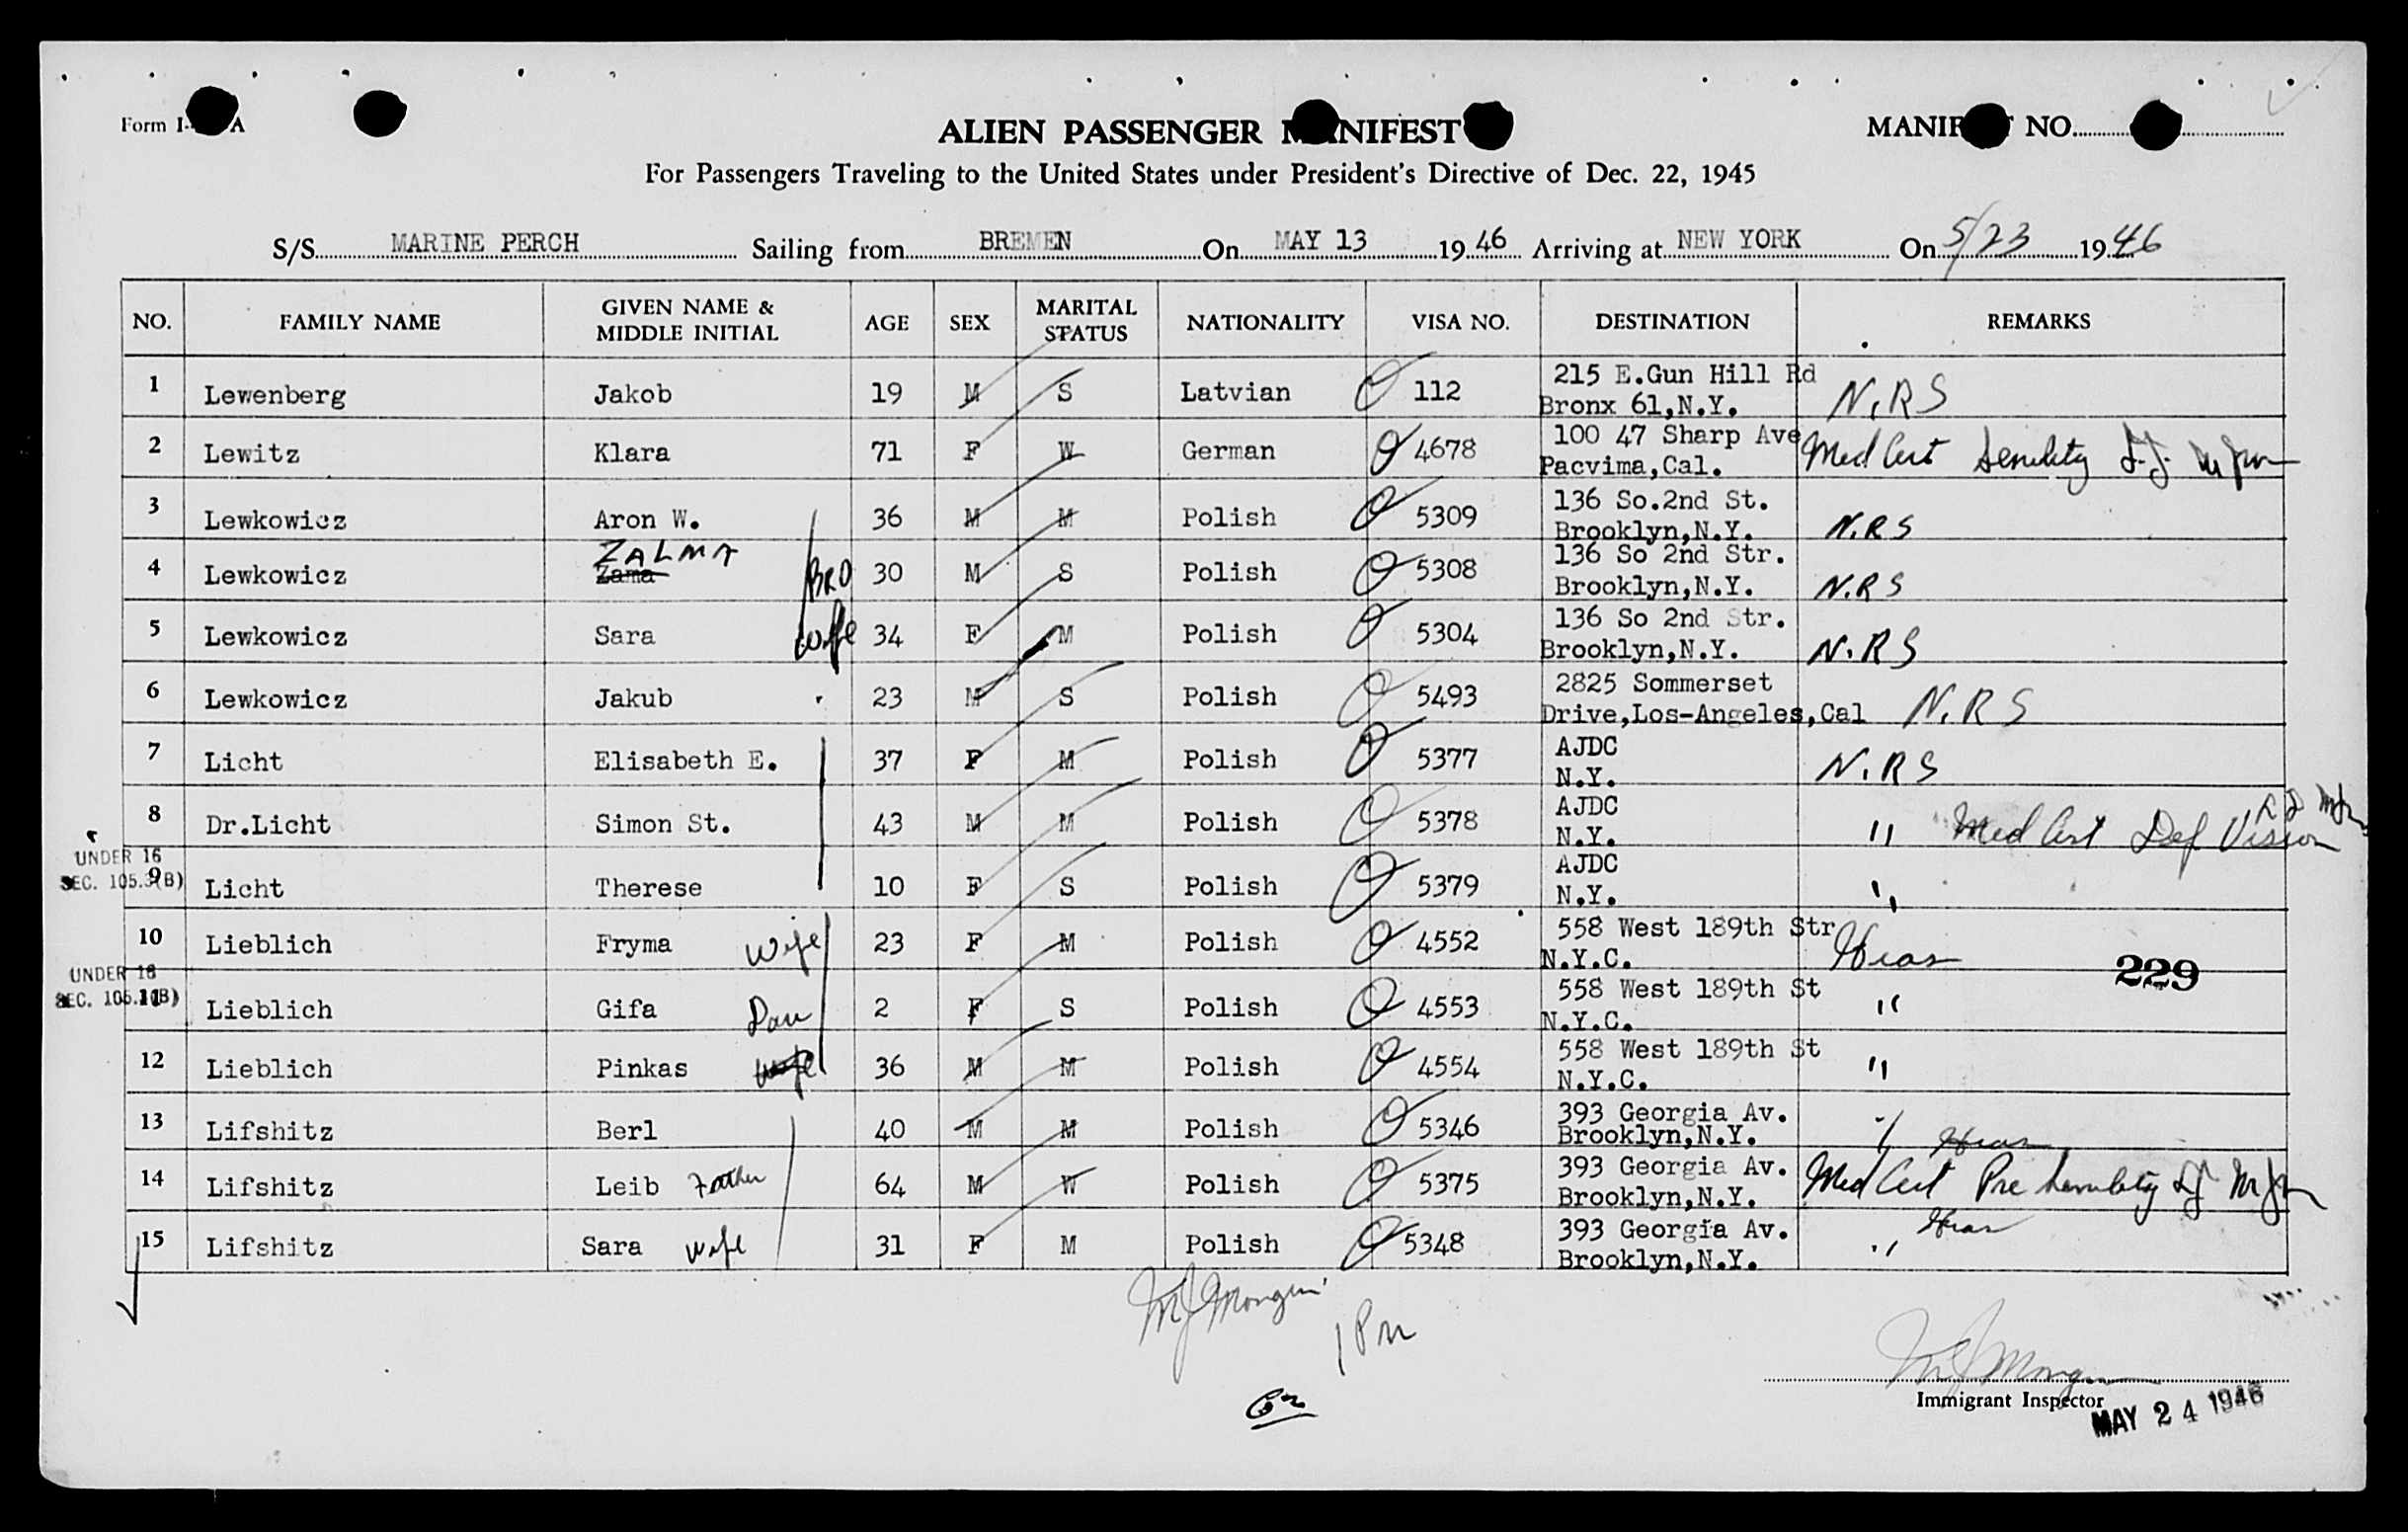 Form I- A
ALIEN PASSENGER MANIFEST
MANIFEST NO.
For Passengers Traveling to the United States under President's Directive of Dec. 22, 1945
S/S MARINE PERCH Sailing from BREMEN On MAY 13 1946 Arriving at NEW YORK On 5/23 1946
NO. FAMILY NAME GIVEN NAME & MIDDLE INITIAL AGE SEX MARITAL STATUS NATIONALITY VISA NO. DESTINATION REMARKS
1 Lewenberg Jakob 19 M S Latvian 112 215 E.Gun Hill Rd N.R S
Bronx 61,N.Y.
2 Lewitz Klara 71 F W German 4678 100 47 Sharp Ave Med Cert Senility
Pacvima,Cal.
3 Lewkowicz Aron W. 36 M M Polish 5309 136 So.2nd St. N.R S
Brooklyn,N.Y.
ZALMA
4 Lewkowicz Zama BRO 30 M S Polish 5308 136 So 2nd Str. N.R S
Brooklyn,N.Y.
5 Lewkowicz Sara Wife 34 F M Polish 5304 136 So 2nd Str. N.R S
Brooklyn,N.Y.
6 Lewkowicz Jakub 23 M S Polish 5493 2825 Sommerset N.R S
Drive,Los-Angeles,Cal
7 Licht Elisabeth E. 37 F M Polish 5377 AJDC N.R S
N.Y.
8 Dr.Licht Simon St. 43 M M Polish 5378 AJDC " Med Cert Def Vision
N.Y.
UNDER 16
SEC. 105.3(B)
9 Licht Therese 10 F S Polish 5379 AJDC "
N.Y.
10 Lieblich Fryma Wife 23 F M Polish 4552 558 West 189th Str Hias
N.Y.C.
229
UNDER 16
SEC. 105.3(B)
11 Lieblich Gifa Dau 2 F S Polish 4553 558 West 189th St "
N.Y.C.
12 Lieblich Pinkas Wife 36 M M Polish 4554 558 West 189th St "
N.Y.C.
13 Lifshitz Berl 40 M M Polish 5346 393 Georgia Av. " Hias
Brooklyn,N.Y.
14 Lifshitz Leib Father 64 M W Polish 5375 393 Georgia Av. Med Cert Pre Senility
Brooklyn,N.Y.
15 Lifshitz Sara Wife 31 F M Polish 5348 393 Georgia Av. " Hias
Brooklyn,N.Y.
1 PM
Immigrant Inspector
MAY 24 1946